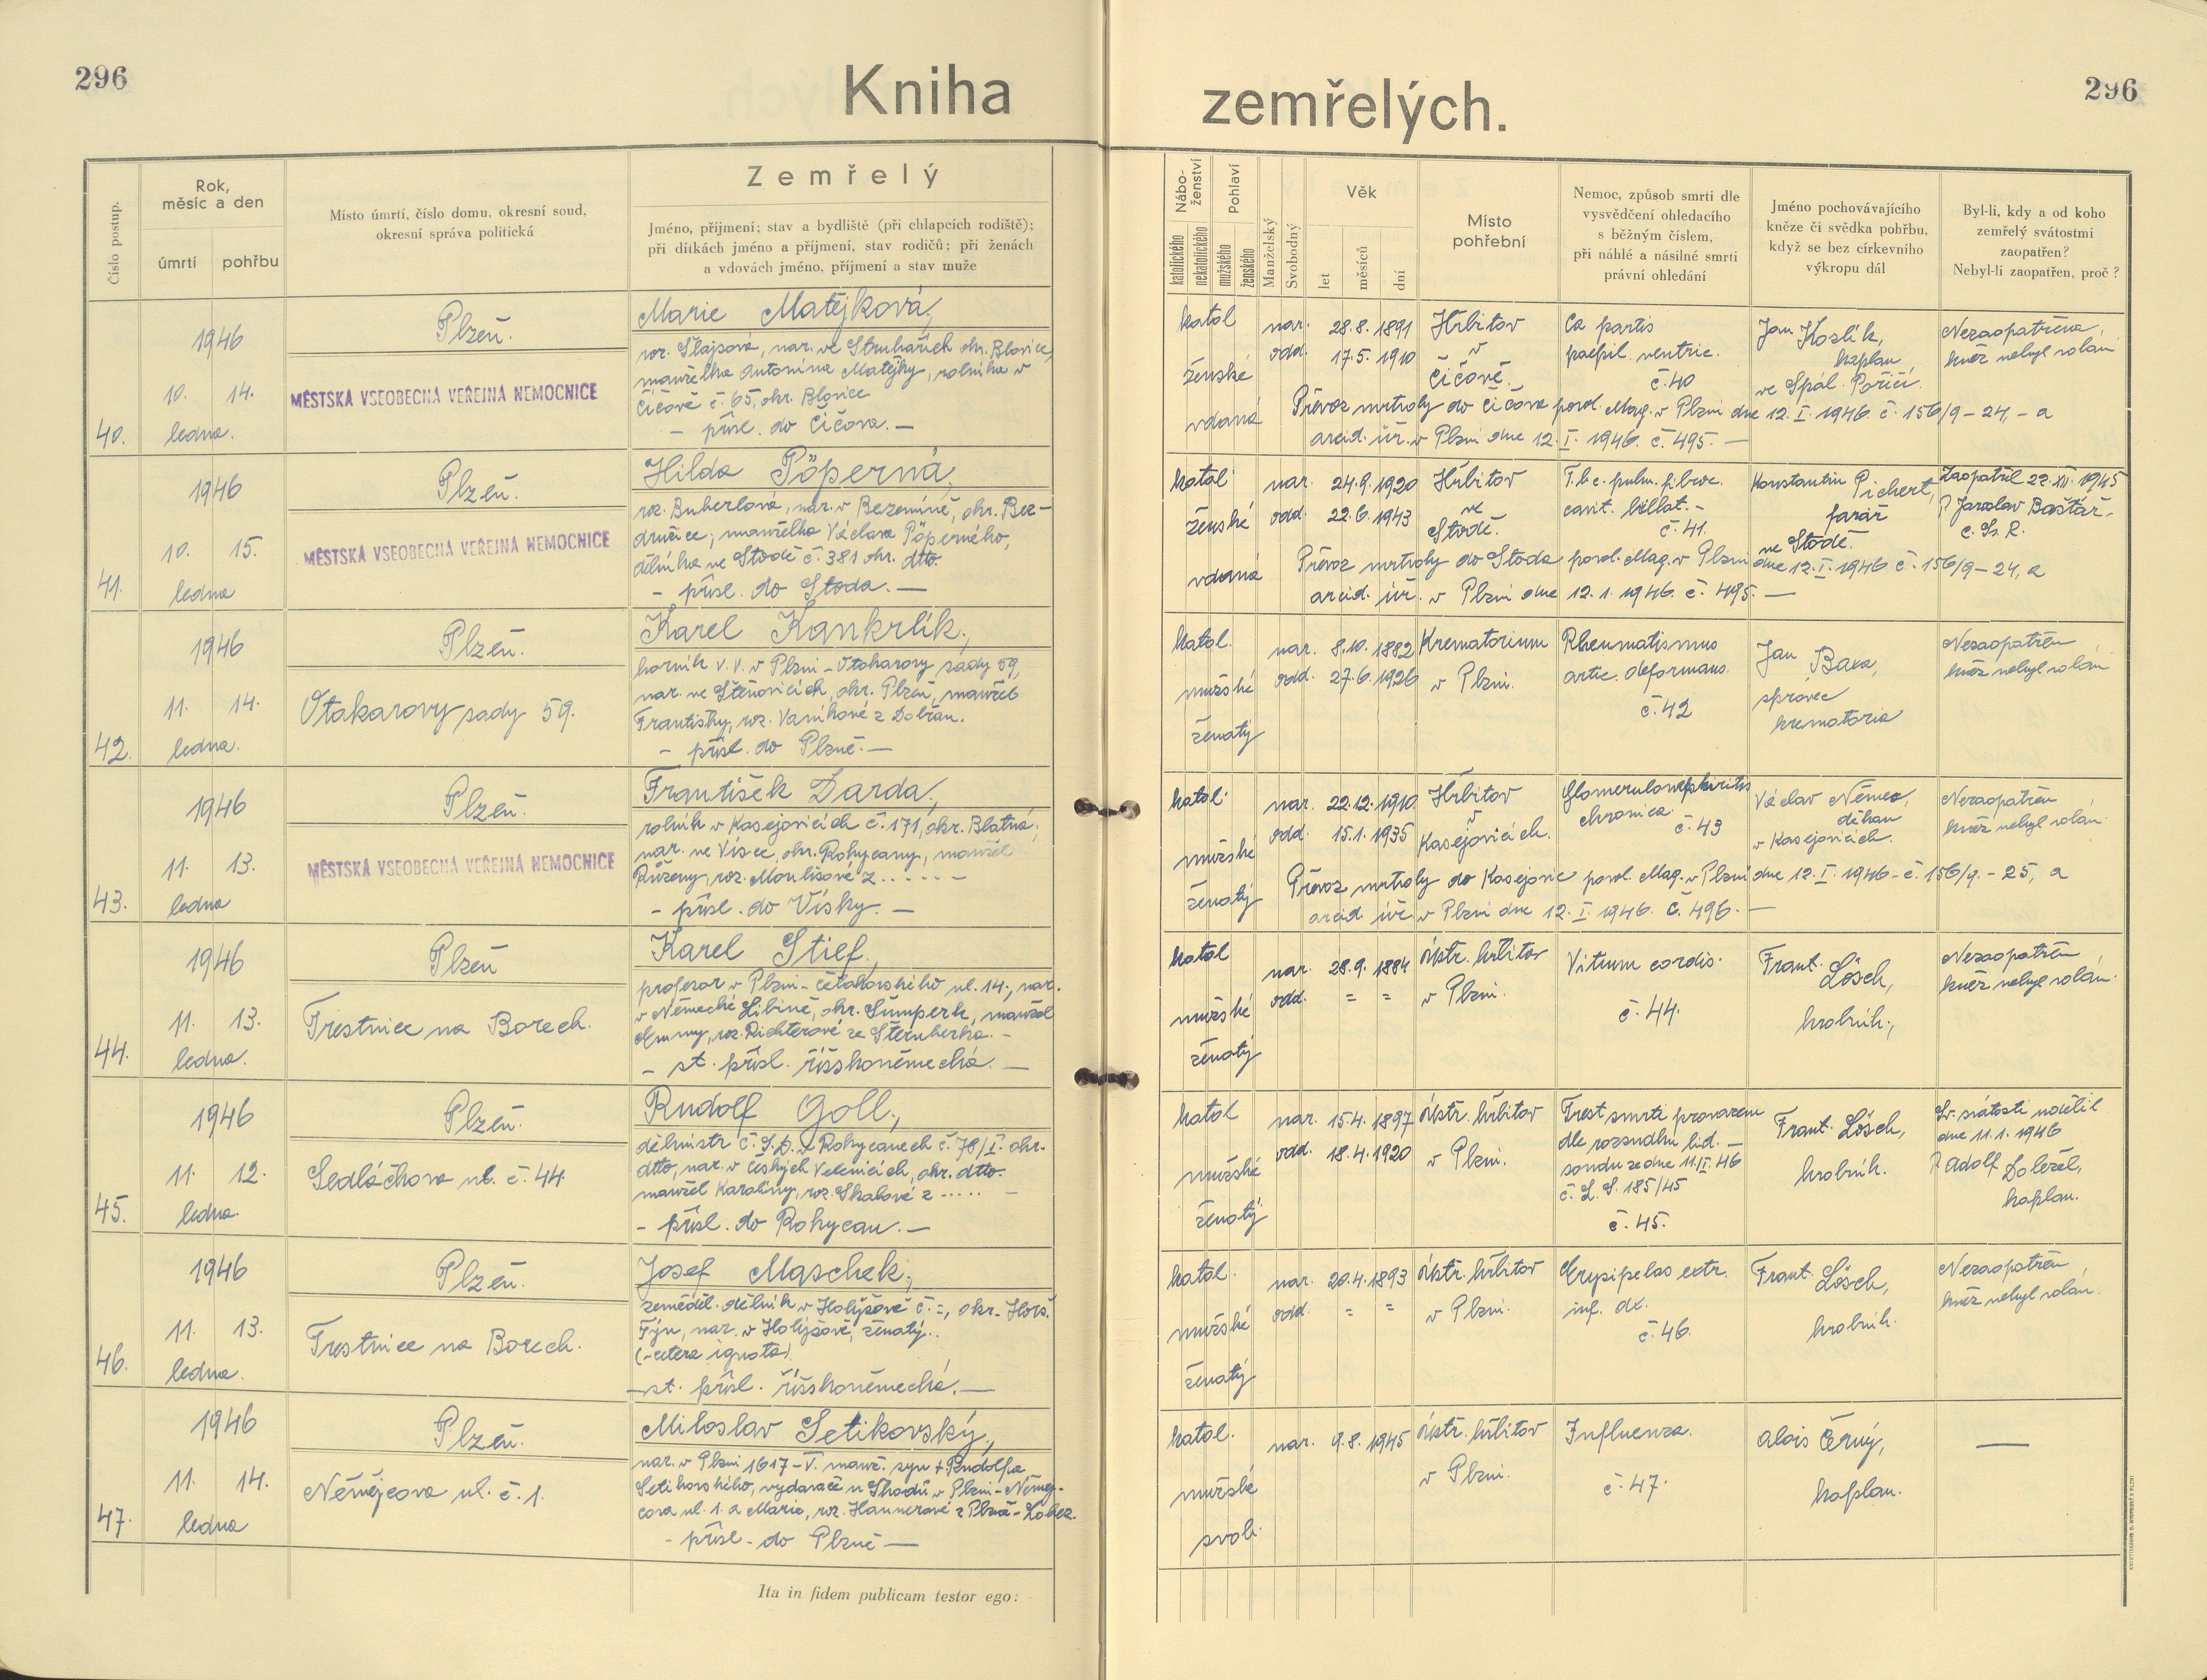 296
Kniha
zemřelých.
296
Číslo postup.
Rok,
měsíc a den
úmrtí
pohřbu
Místo úmrtí, číslo domu, okresní soud,
okresní správa politická
Zemřelý
Jméno, příjmení; stav a bydliště (při chlapcích rodiště);
při dítkách jméno a příjmení, stav rodičů; při ženách
a vdovách jméno, příjmení a stav muže
Nábo-
ženství
katolického
nekatolického
Pohlaví
mužského
ženského
Manželský
Svobodný
Věk
let
měsíců
dní
Místo
pohřební
Nemoc, způsob smrti dle
vysvědčení ohledacího
s běžným číslem,
při náhlé a násilné smrti
právní ohledání
Jméno pochovávajícího
kněze či svědka pohřbu,
když se bez církevního
výkropu dál
Byl-li, kdy a od koho
zemřelý svátostmi
zaopatřen?
Nebyl-li zaopatřen, proč?
40.
1946
10. 14.
ledna.
Plzeň.
MĚSTSKÁ VŠEOBECNÁ VEŘEJNÁ NEMOCNICE
Marie Matějková,
roz. Šlajsová, nar. ve Struhařích okr. Blovice,
manželka Antonína Matějky, rolníka v
Číčově č. 65, okr. Blovice
- přísl. do Číčova. -
katol
ženské
vdaná
nar. 28.8. 1891
odd. 17.5. 1910
Hřbitov
v
Číčově.
Ca partis
paepil. ventric.
č. 40
Jan Koslík,
kaplan
ve Spál. Poříčí.
Nezaopatřena,
kněz nebyl volán
Převoz mrtvoly do Číčova povol. Mag. v Plzni dne 12. I. 1946. č. 156/9-24,- a
arcid. úř. v Plzni dne 12. I. 1946. č. 495. -
41.
1946
10. 15.
ledna
Plzeň.
MĚSTSKÁ VŠEOBECNÁ VEŘEJNÁ NEMOCNICE
Hilda Pöperná,
roz. Buherlová, nar. v Bezemíně, okr. Bez-
družice, manželka Václava Pöperného,
dělníka ve Stodě č. 381 okr. dtto.
- přísl. do Stoda. -
katol.
ženské
vdaná
nar. 24.9. 1920
odd. 22.6. 1943
Hřbitov
ve
Stodě.
T.b.c. pulm. fibroc.
cavit. billat. -
č. 41.
Konstantin Pichert,
farář
ve Stodě.
Zaopatřil 22. XII. 1945
P. Jaroslav Baštář,
C. Ss. R.
Převoz mrtvoly do Stoda povol. Mag. v Plzni dne 12. I. 1946 č. 156/9-24, a
arcid. úř. v Plzni dne 12. 1. 1946. č. 495. -
42.
1946
11. 14.
ledna.
Plzeň.
Otakarovy sady 59.
Karel Kankrlík,
horník v. v. v Plzni - Otakarovy sady 59,
nar. ve Štěnovicích, okr. Plzeň, manžel
Františky, roz. Vaníkové z Dobřan.
- přísl. do Plzně. -
katol.
mužské
ženatý
nar. 8.10. 1882
odd. 27.6. 1926
Krematorium
v Plzni.
Rheumatismus
artic. deformans.
č. 42
Jan Baxa,
správce
krematoria
Nezaopatřen
kněz nebyl volán
43.
1946
11. 13.
ledna
Plzeň.
MĚSTSKÁ VŠEOBECNÁ VEŘEJNÁ NEMOCNICE
František Darda,
rolník v Kasejovicích č. 171, okr. Blatná,
nar. ve Vísce, okr. Rokycany, manžel
Růženy, roz. Moulisové z ..... -
- přísl. do Vísky. -
katol.
mužské
ženatý
nar. 22.12. 1910
odd. 15.1. 1935
Hřbitov
v
Kasejovicích.
Glomerulonephiritis
chronica.
č. 43
Václav Němec,
děkan
v Kasejovicích.
Nezaopatřen
kněz nebyl volán
Převoz mrtvoly do Kasejovic povol. Mag. v Plzni dne 12. I. 1946 - č. 156/9. - 25, a
arcid. úř. v Plzni dne 12. I. 1946. č. 496. -
44.
1946
11. 13.
ledna.
Plzeň
Trestnice na Borech.
Karel Stief,
profesor v Plzni - Četakovského ul. 14., nar.
v Německé Libině, okr. Šumperk, manžel
Emmy, roz. Richterové ze Šternberka. -
- st. přísl. říšskoněmecká. -
katol
mužské
ženatý
nar. 28.9. 1884
odd. = =
Ústř. hřbitov
v Plzni.
Vitium cordis.
č. 44.
Frant. Lösch,
hrobník.,
Nezaopatřen
kněz nebyl volán.
45.
1946
11. 12.
ledna.
Plzeň.
Sedláčkova ul. č. 44.
Rudolf Goll,
dělmistr Č.S.D. v Rokycanech č. 78/I. okr.
dtto, nar. v Českých Velenicích, okr. dtto.
manžel Karoliny, roz. Skalové z ..... -
- přísl. do Rokycan. -
katol
mužské
ženatý.
nar. 15.4. 1897
odd. 18.4. 1920
Ústř. hřbitov
v Plzni.
Trest smrti provazem
dle rozsudku lid. -
soudu ze dne 11. I. 46
č. L. S. 185/45
č. 45.
Frant. Lösch,
hrobník.
Sv. svátosti udělil
dne 11.1. 1946
P. Adolf Doležel,
kaplan.
46.
1946
11. 13.
ledna.
Plzeň.
Trestnice na Borech.
Josef Maschek,
zeměděl. dělník v Holýšově č. =, okr. Horš.
Týn, nar. v Holýšově, ženatý..
(-cetera ignota)
- st. přísl. říšskoněmecká. -
katol.
mužské
ženatý
nar. 20.4. 1893
odd. = =
Ústř. hřbitov
v Plzni.
Erysipelas extr.
inf. dx.
č. 46.
Frant. Lösch,
hrobník.
Nezaopatřen
kněz nebyl volán.
47.
1946
11. 14.
ledna
Plzeň.
Némějcova ul. č. 1.
Miloslav Setikovský,
nar. v Plzni 1617-V. manž. syn + Rudolfa
Setikovského, vydavače u Škodů v Plzni - Němej-
cova ul. 1. a Marie, roz. Hannerové z Plzně - Lobez.
- přísl. do Plzně -
katol.
mužské
svob.
nar. 9.8. 1945
Ústř. hřbitov
v Plzni.
Influenza.
č. 47.
Alois Černý,
kaplan.
—
Ita in fidem publicam testor ego: